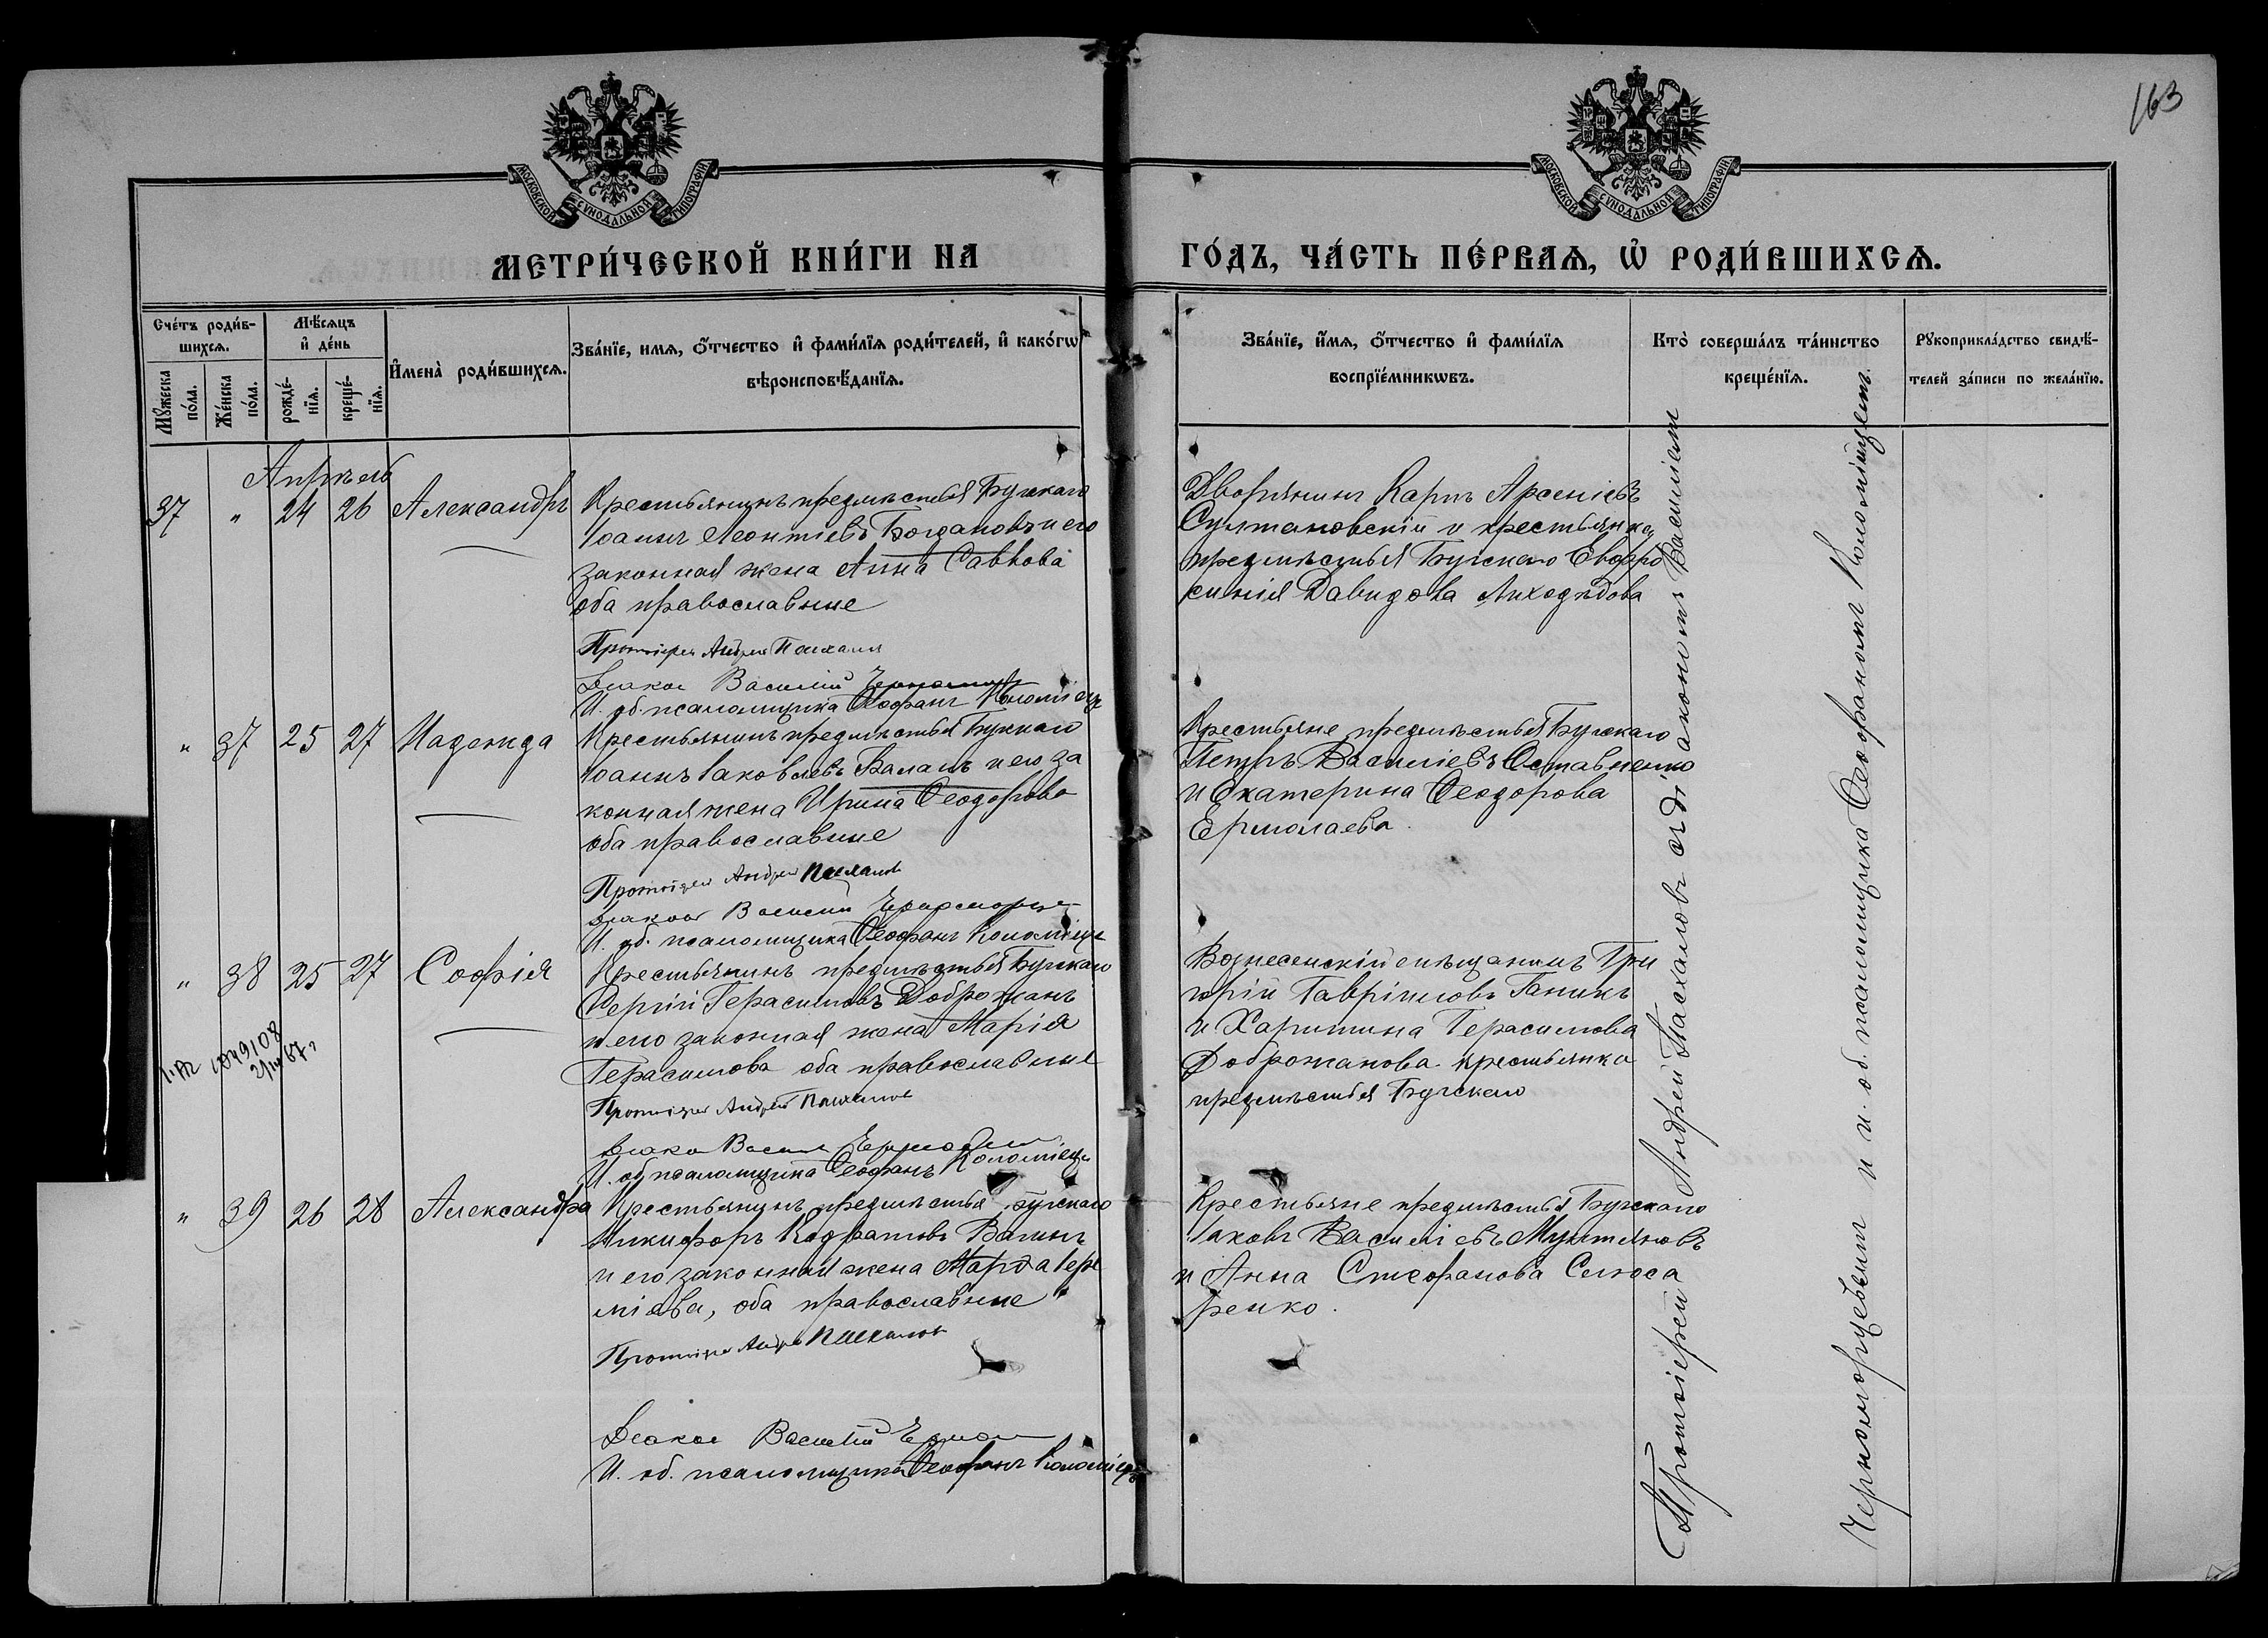 163
МОСКОВСКОЙ СѴНОДАЛЬНОЙ ТИПОГРАФІИ
МОСКОВСКОЙ СѴНОДАЛЬНОЙ ТИПОГРАФІИ
МЕТРИ́ЧЕСКОЙ КНИ́ГИ НА ГО́ДЪ, ЧА́СТЬ ПЕ́РВАЯ, Ѽ РОДИ́ВШИХСЯ.
Сче́тъ роди́в-
шихся.
Мꙋжеска по́ла.
Же́нска по́ла.
Мѣ́сяцъ
и҆ де́нь
рожде́-
нїя.
креще́-
нїя.
И҆мена̀ роди́вшихся.
Зва́нїе, имя, ѻ҆́тчество и҆ фами́лїя роди́телей, и҆ како́гѡ
вѣроисповѣ́данїя.
Зва́нїе, и҆́мя, ѻ҆́тчество и҆ фами́лїя
воспрїе́мникѡвъ.
Кто̀ соверша́лъ та́инство
креще́нїя.
Рꙋкоприкла́дство свидѣ́-
телей за́писи по жела́нїю.
Апрѣль
37 " 24 26 Александръ
Крестьянинъ предмѣстья Бугскаго
Іоаннъ Леонтіевъ Богдановъ и его
законная жена Анна Саввова
оба православные
Протоіерей Андрей Пасхаловъ
Діаконъ Василій
И. об. псаломщика Ѳеофанъ Коломіецъ
Дворянинъ Карпъ Арсеніевъ
Султановскій и крестьянка
предмѣстья Бугскаго Евфро
синія Давидова Лиходѣдова
" 37 25 27 Надежда
Крестьянинъ предмѣстья Бугскаго
Іоаннъ Іаковлевъ Баланъ и его за
конная жена Ирина Ѳеодорова
оба православные
Протоіерей Андрей Пасхаловъ
Діаконъ Василій Черноморцевъ
И. об. псаломщика Ѳеофанъ Коломіецъ
Крестьяне предмѣстья Бугскаго
Петръ Василіевъ Оставненко
и Екатерина Ѳеодорова
Ермолаева.
" 38 25 27 Софія
Крестьянинъ предмѣстья Бугскаго
Сергій Герасимовъ Доброжанъ
и его законная жена Марія
Герасимова оба православные
Протоіерей Андрей Пасхаловъ
Діаконъ Василій
И. об псаломщика Ѳеофанъ Коломіецъ
Вознесенскій мѣщанинъ Гри
горій Гавріиловъ Ганинъ
и Харитина Герасимова
Доброжанова крестьянка
предмѣстья Бугскаго
" 39 26 28 Александра
Крестьянинъ предмѣстья Бугскаго
Никифоръ Кодратовъ Вагинъ
и его законная жена Марѳа Іере
міева, оба православные
Протоіерей Андрей Пасхаловъ
Діаконъ Василій
И. об. псаломщика Ѳеофанъ Коломіецъ
Крестьяне предмѣстья Бугскаго
Іаковъ Василіевъ Мунтяновъ
и Анна Стефанова Слюса
ренко.
Протоіерей Андрей Пасхаловъ съ діакономъ Василіемъ
Черноморцевымъ и и. об. псаломщика Ѳеофаномъ Коломійцемъ.